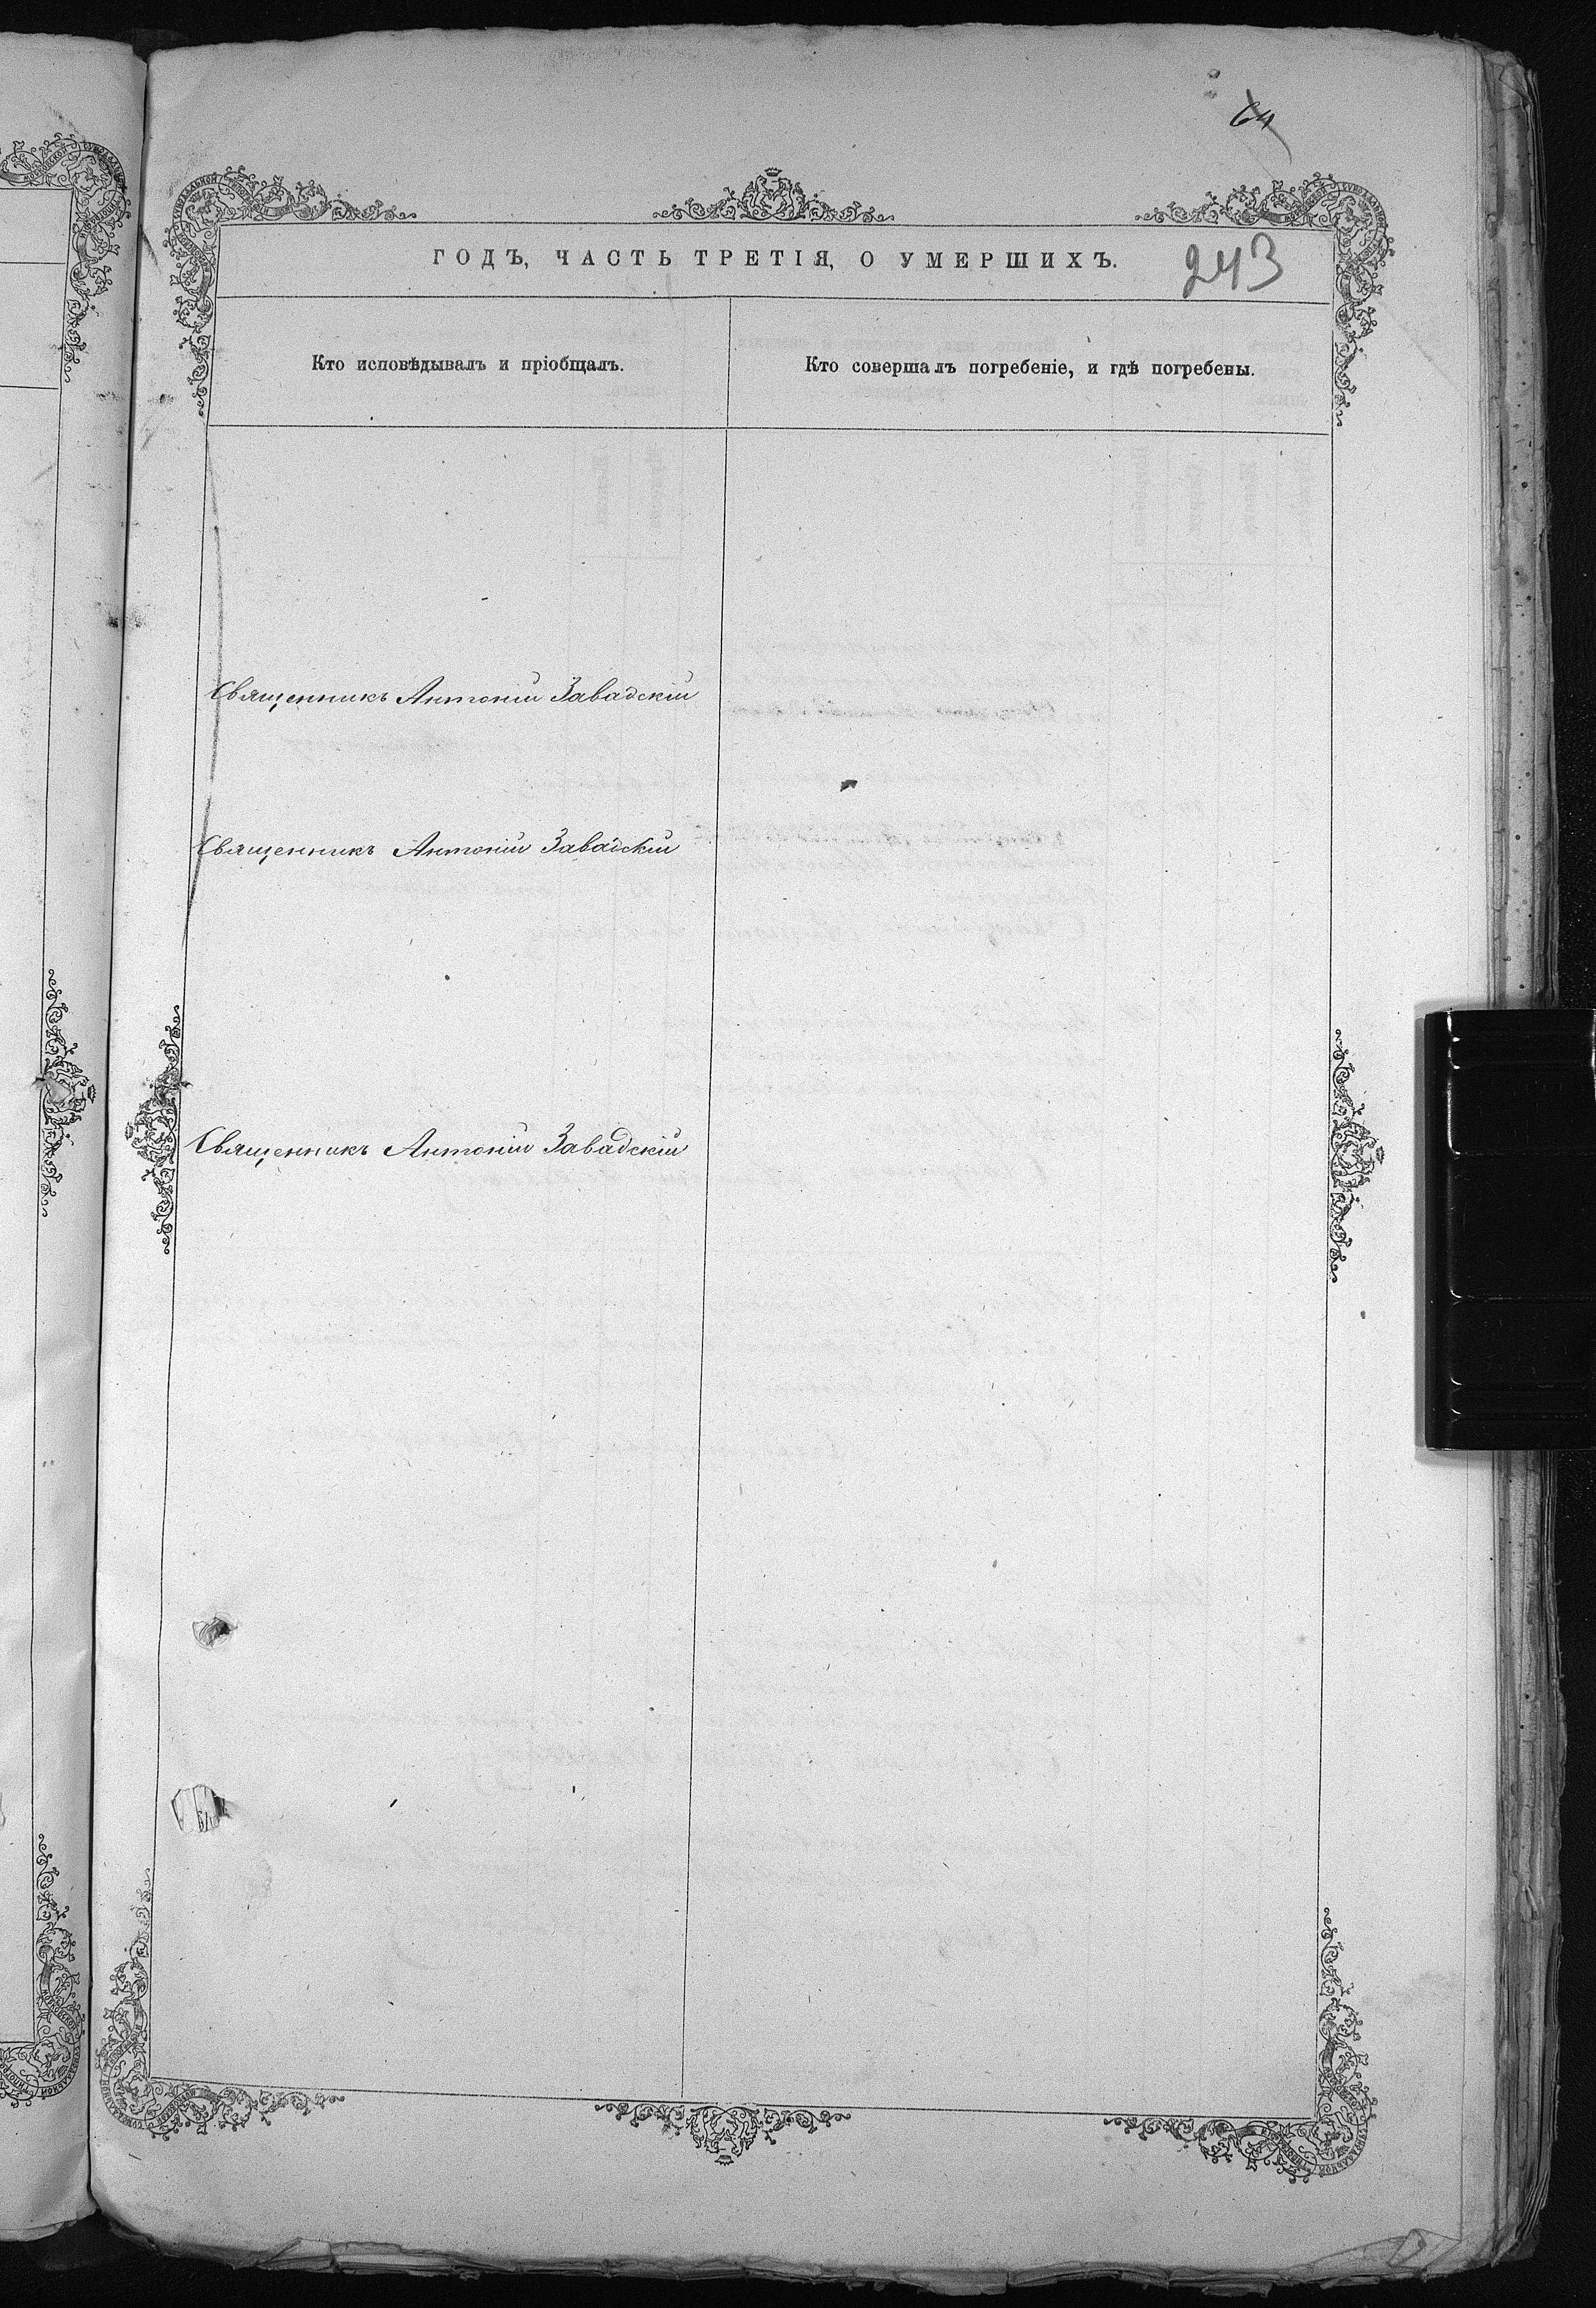 64
ГОДЪ, ЧАСТЬ ТРЕТІЯ, О УМЕРШИХЪ.
243
Кто исповѣдывалъ и пріобщалъ.
Кто совершалъ погребеніе, и гдѣ погребены.
Священникъ Антоній Завадскій
Священникъ Антоній Завадскій
Священникъ Антоній Завадскій